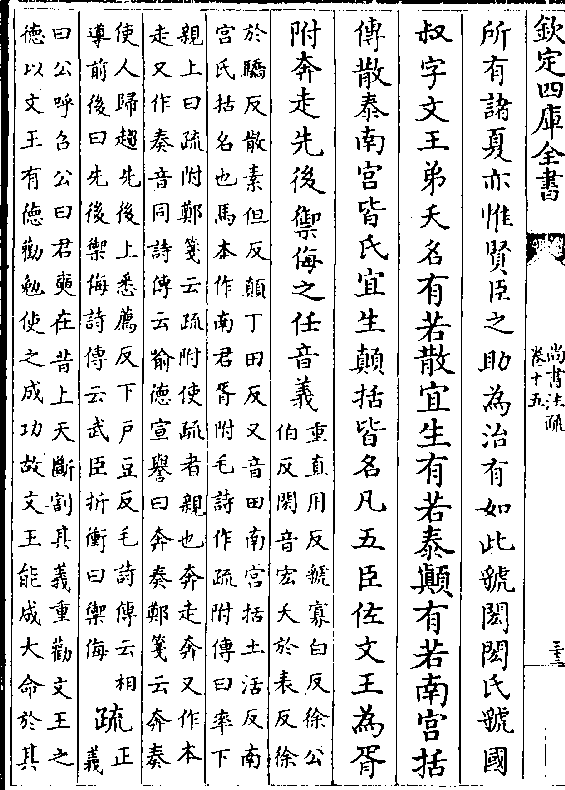 欽定四庫全書
尚書注疏
卷十五
二十三
所有諸夏亦惟賢臣之助為治有如此虢閎閎氏虢國
叔字文王弟夭名有若散宜生有若泰顛有若南宮括
傳散泰南宮皆氏宜生顛括皆名凡五臣佐文王為胥
附奔走先後禦侮之任音義
重直用反虢寡白反徐公
伯反閎音宏夭於表反徐
於驕反散素但反顛丁田反又音田南宮括土活反南
宮氏括名也馬本作南君胥附毛詩作疏附傳曰率下
親上曰疏附鄭箋云疏附使疏者親也奔走奔又作本
走又作奏音同詩傳云喻德宣譽曰奔奏鄭箋云奔奏
使人歸趨先後上悉薦反下戶豆反毛詩傳云相
導前後曰先後禦侮詩傳云武臣折衝曰禦侮
疏
正
義
曰公呼召公曰君奭在昔上天斷割其義重勸文王之
德以文王有德勸勉使之成功故文王能成大命於其